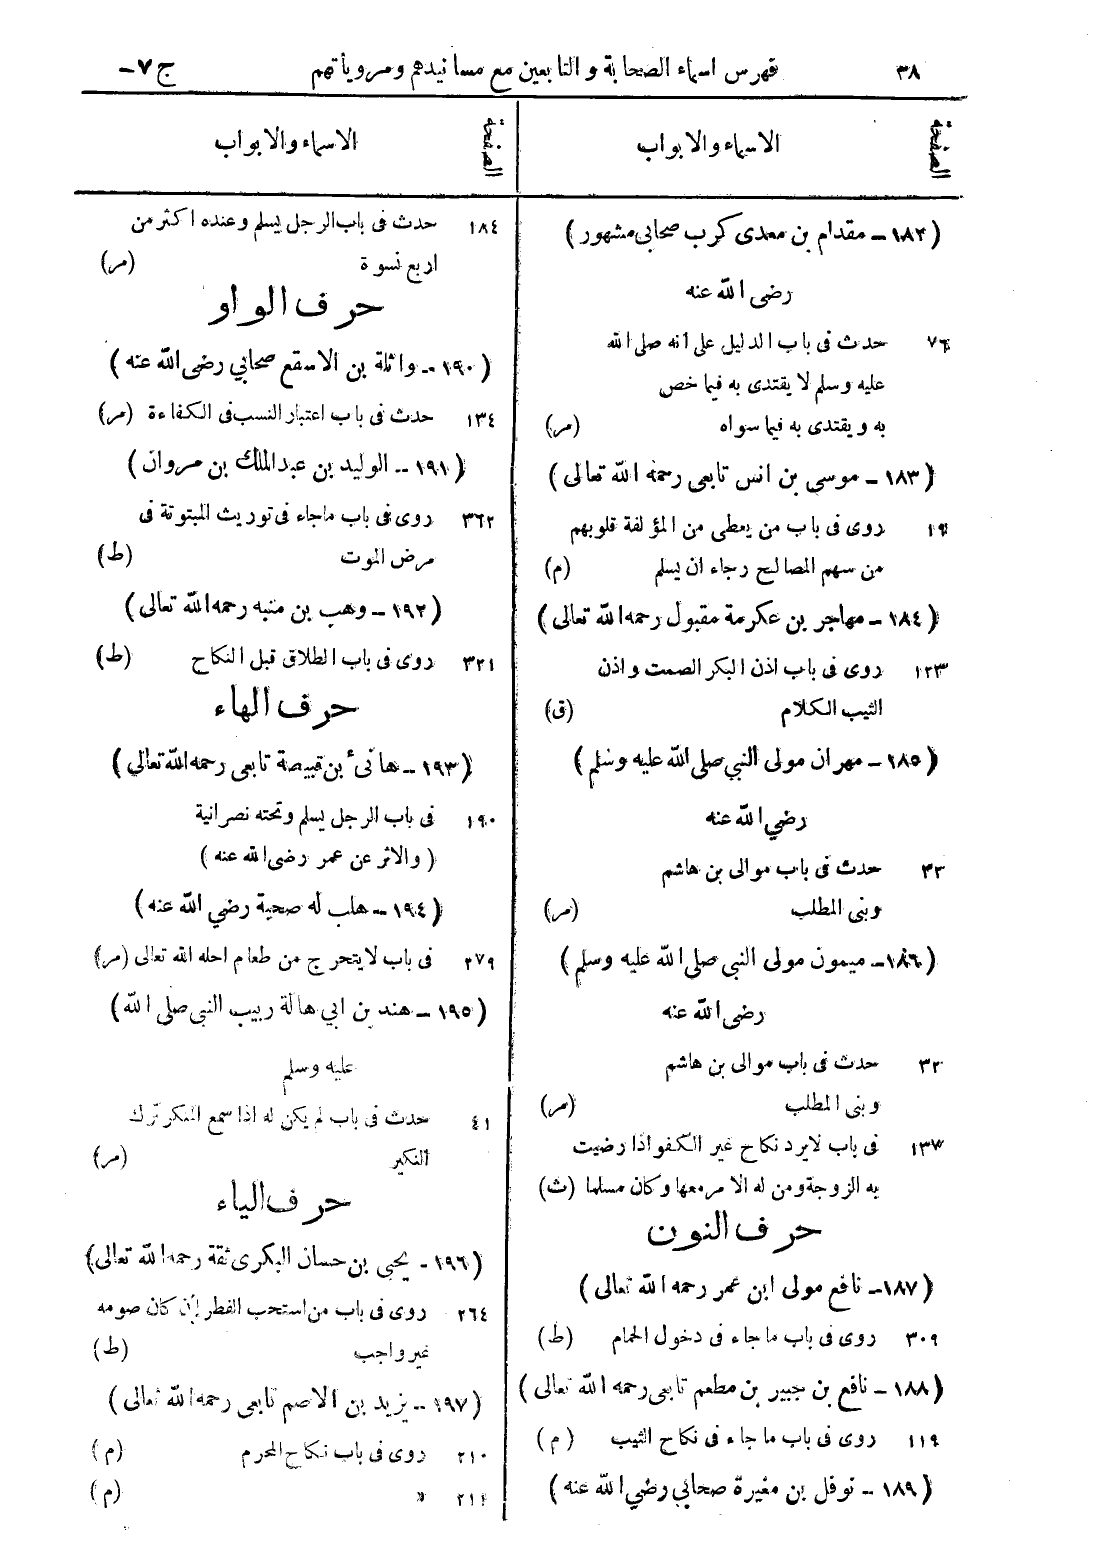 ٣٨ فهرس اسماء الصحابة والتابعين مع مسانيدهم ومروياتهم ج ٧-
الصفحة الاسماء والابواب
(١٨٢ - مقدام بن معدى كرب صحابى مشهور)
رضى الله عنه
٧٦ حدث فى باب الدليل على أنه صلى الله
عليه وسلم لا يقتدى به فيما خص
به ويقتدى به فيما سواه (مر)
(١٨٣ - موسى بن انس تابعى رحمه الله تعالى)
١٩ روى فى باب من يعطى من المؤلفة قلوبهم
من سهم المصالح رجاء ان يسلم (م)
(١٨٤ - مهاجر بن عكرمة مقبول رحمه الله تعالى)
١٢٣ روى فى باب اذن البكر الصمت واذن
الثيب الكلام (ق)
(١٨٥ - مهران مولى النبي صلى الله عليه وسلم)
رضي الله عنه
٣٢ حدث فى باب موالى بن هاشم
وبنى المطلب (مر)
(١٨٦ - ميمون مولى النبي صلى الله عليه وسلم)
رضى الله عنه
٣٢ حدث فى باب موالى بن هاشم
وبنى المطلب (مر)
١٣٧ فى باب لايرد نكاح غير الكفو اذا رضيت
به الزوجة ومن له الامر معها وكان مسلما (ث)
حرف النون
(١٨٧ - نافع مولى ابن عمر رحمه الله تعالى)
٣٠٩ روى فى باب ما جاء فى دخول الحمام (ط)
(١٨٨ - نافع بن جبير بن مطعم تابعى رحمه الله تعالى)
١١٩ روى فى باب ما جاء فى نكاح الثيب (م)
(١٨٩ - نوفل بن مغيرة صحابي رضي الله عنه)
الصفحة الاسماء والابواب
١٨٤ حدث فى باب الرجل يسلم وعنده اكثر من
اربع نسوة (مر)
حرف الواو
(١٩٠ - واثلة بن الاسقع صحابي رضى الله عنه)
١٣٤ حدث فى باب اعتبار النسب فى الكفاءة (مر)
(١٩١ - الوليد بن عبدالملك بن مروان)
٣٦٢ روى فى باب ماجاء فى توريث المبتوتة فى
مرض الموت (ط)
(١٩٢ - وهب بن منبه رحمه الله تعالى)
٣٢١ روى فى باب الطلاق قبل النكاح (ط)
حرف الهاء
(١٩٣ - هانىء بن قبيصة تابعى رحمه الله تعالى)
١٩٠ فى باب الرجل يسلم وتحته نصرانية
(والاثر عن عمر رضى الله عنه)
(١٩٤ - هلب له صحبة رضي الله عنه)
٢٧٩ فى باب لا يتحرج من طعام احله الله تعالى (مر)
(١٩٥ - هند بن ابي هالة ربيب النبى صلى الله)
عليه وسلم
٤١ حدث فى باب لم يكن له اذا سمع المنكر ترك
النكير (مر)
حرف الياء
(١٩٦ - يحيى بن حسان البكرى ثقة رحمه الله تعالى)
٢٦٤ روى فى باب من استحب الفطر إن كان صومه
غير واجب (ط)
(١٩٧ - يزيد بن الاصم تابعى رحمه الله تعالى)
٢١٠ روى فى باب نكاح المحرم (م)
٢١٢ » (م)